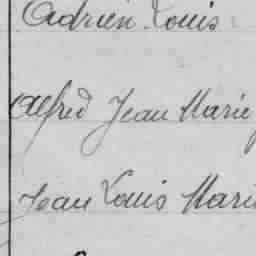 Adrien Louis
Alfred Jean Marie
Jean Louis Marie